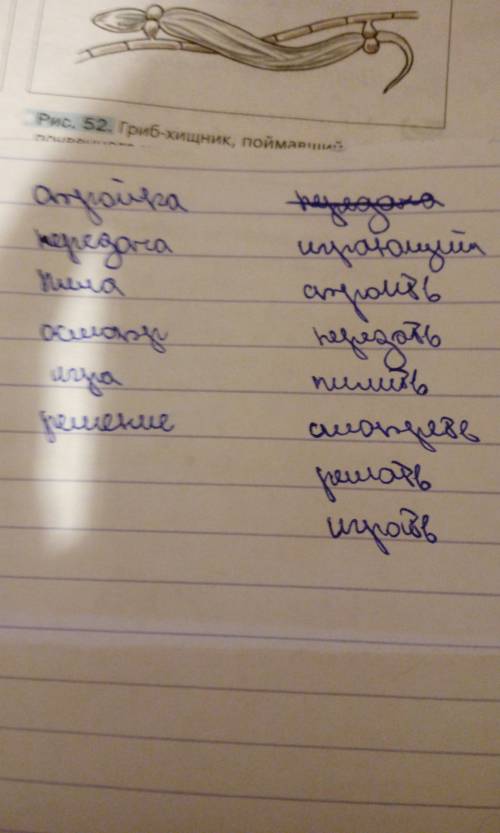 Рис. 52. Гриб-хищник, поймавший
стройка
передача
пила
осмотр
игра
решение
передача
играющий
строить
передать
пилить
смотреть
решать
играть